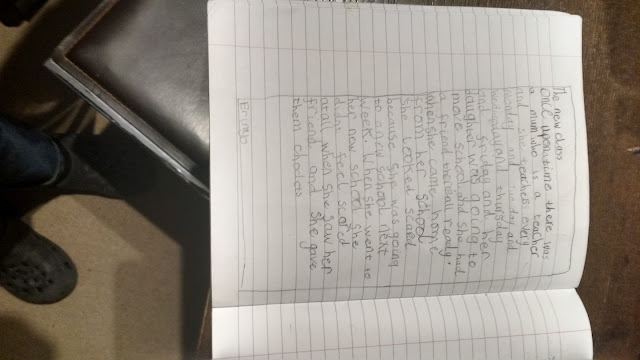 The new class
Once upon a time there was
a mum who is a teacher
and she teaches every
monday and tuesday and
wednesday and thursday
and friday and her
daughter was going to
move school and she had
a friend there all ready.
When she came home
from her school
she looked scard
because she was going
to a new school next
week. When she went to
her new school she
didnt feel scared
atall when she saw her
friend and she gave
them chocolas